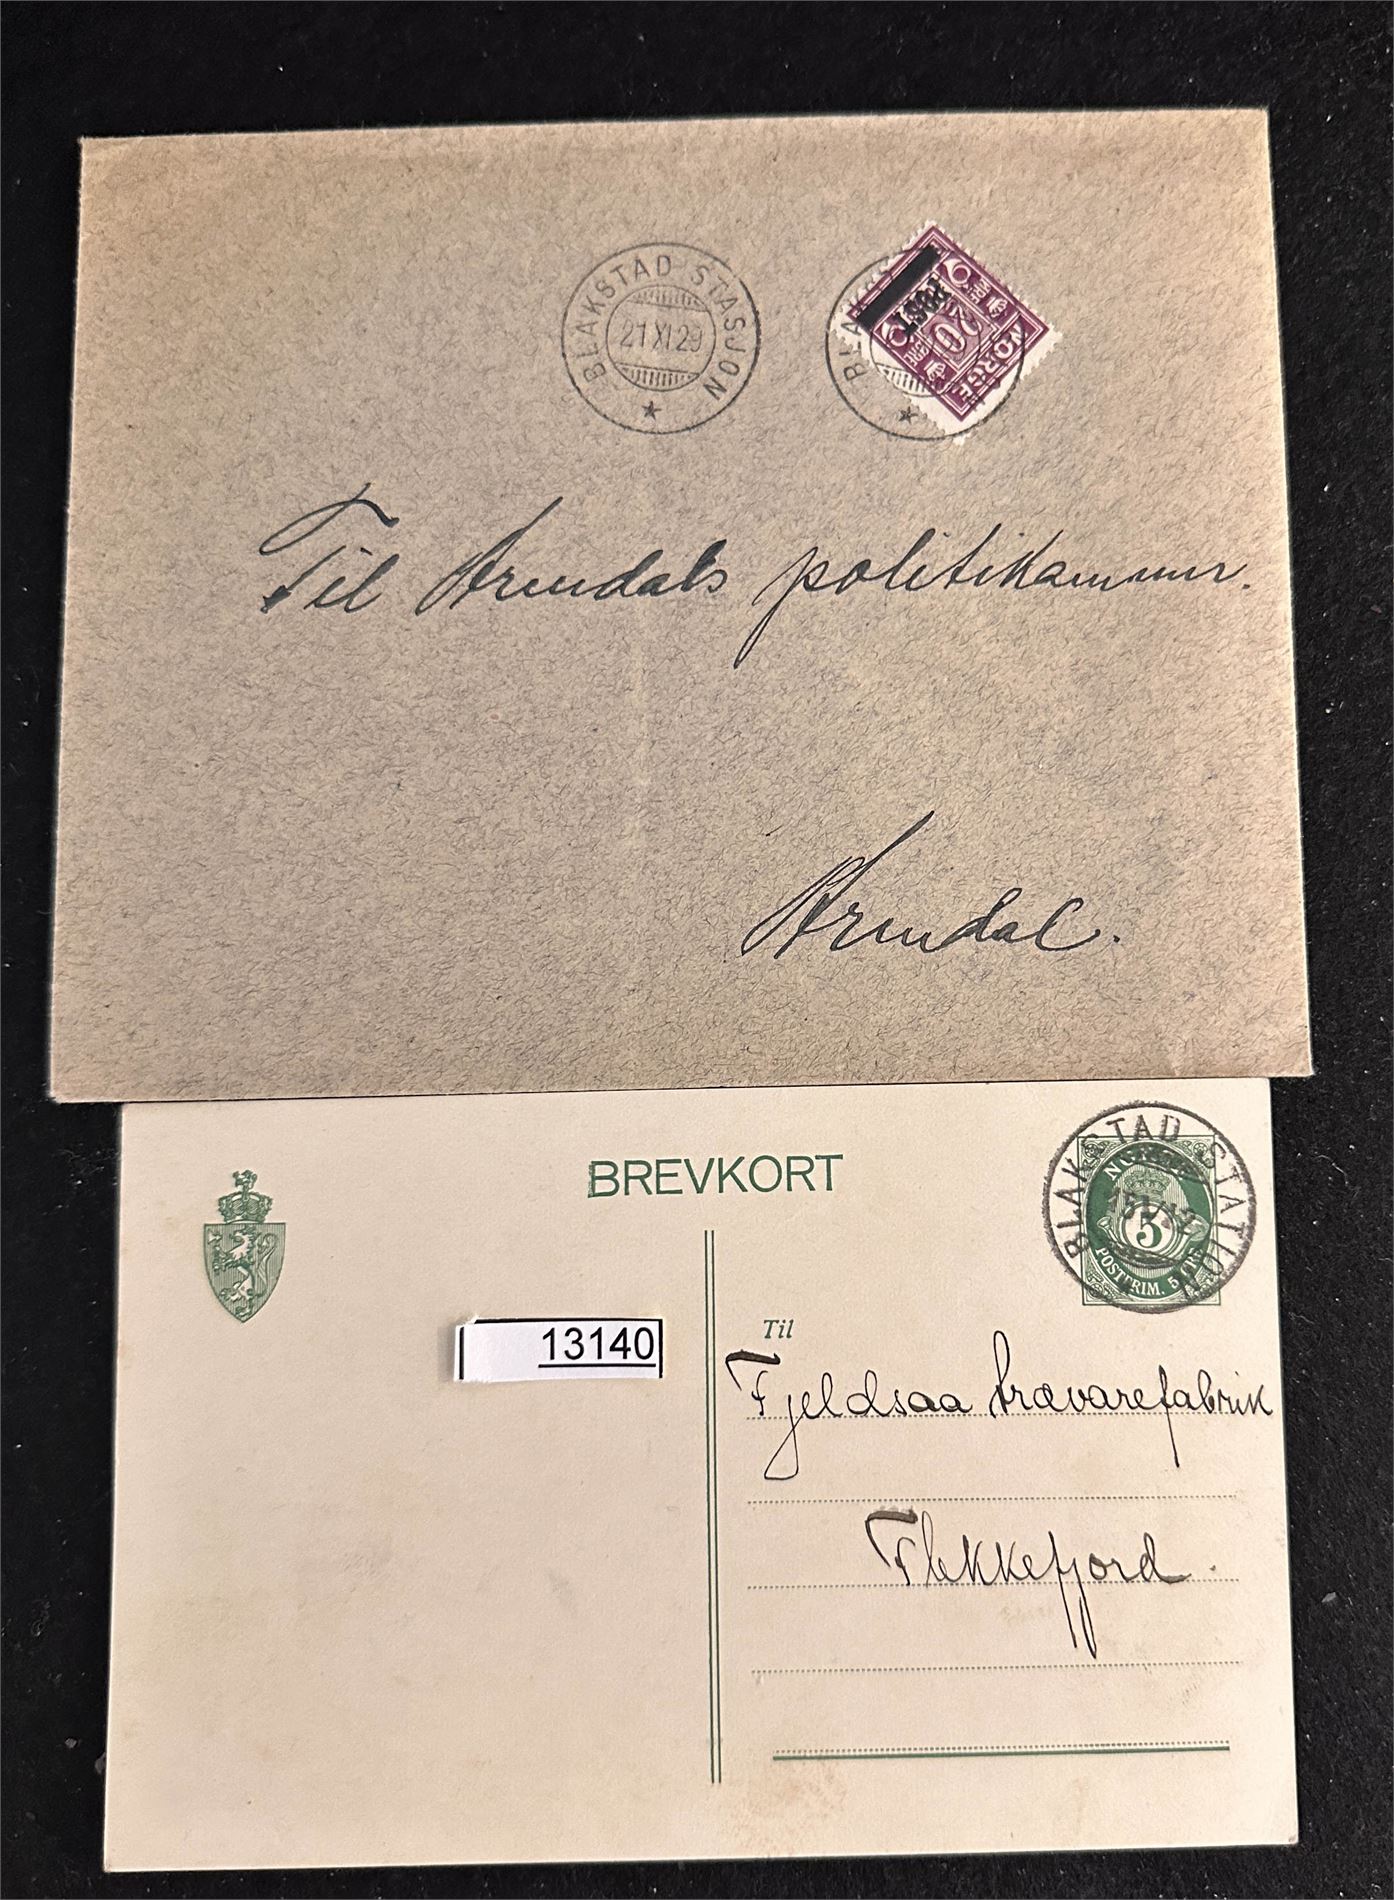 BLAKSTAD STASJON
21 XI 29
NORGE
20
POST
Til Arendals politikammer.
Arendal.
BREVKORT
BLAKSTAD STATION
5
POSTFRIM. 5 ØRE
13140
Til
Fjeldsaa trævarefabrik
Flekkefjord.